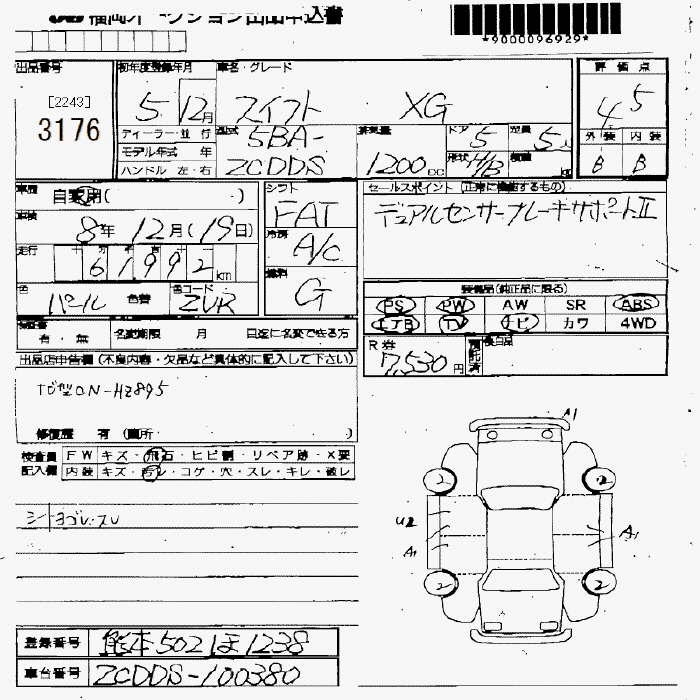 福岡オークション出品申込書
*9000096929*
出品番号
[2243]
3176
初年度登録年月
5 12月
車名・グレード
スイフト XG
評価点
4.5
外装 内装
B B
ディーラー・並行
モデル年式 年
ハンドル 左・右
型式
5BA-
ZCDDS
排気量
1200cc
ドア
5
形状
H/B
定員
5人
積載
kg
車歴
自家用( )
車検
8年 12月(19日)
走行
61992km
色
パール
色替
色コード
ZVR
シフト
FAT
冷房
A/C
燃料
G
セールスポイント (正常に機能するもの)
デュアルセンサーブレーキサポートII
装備品(純正品に限る)
PS PW AW SR ABS
エアB TV ナビ カワ 4WD
有・無 名変期限 月 日迄に名変できる方
R券
7,530円
預託済
出品店申告欄 (不良内容・欠品など具体的に記入して下さい)
TVナビDN-HZ895
修復歴 有 (箇所・ )
検査員
記入欄
FW キズ・飛石・ヒビ割・リペア跡・X要
内装 キズ・汚レ・コゲ・穴・スレ・キレ・破レ
シートヨゴレ・スレ
A1
2
2
U2
A1
A1
2
2
登録番号 熊本 502 ほ 1238
車台番号 ZCDDS-100380